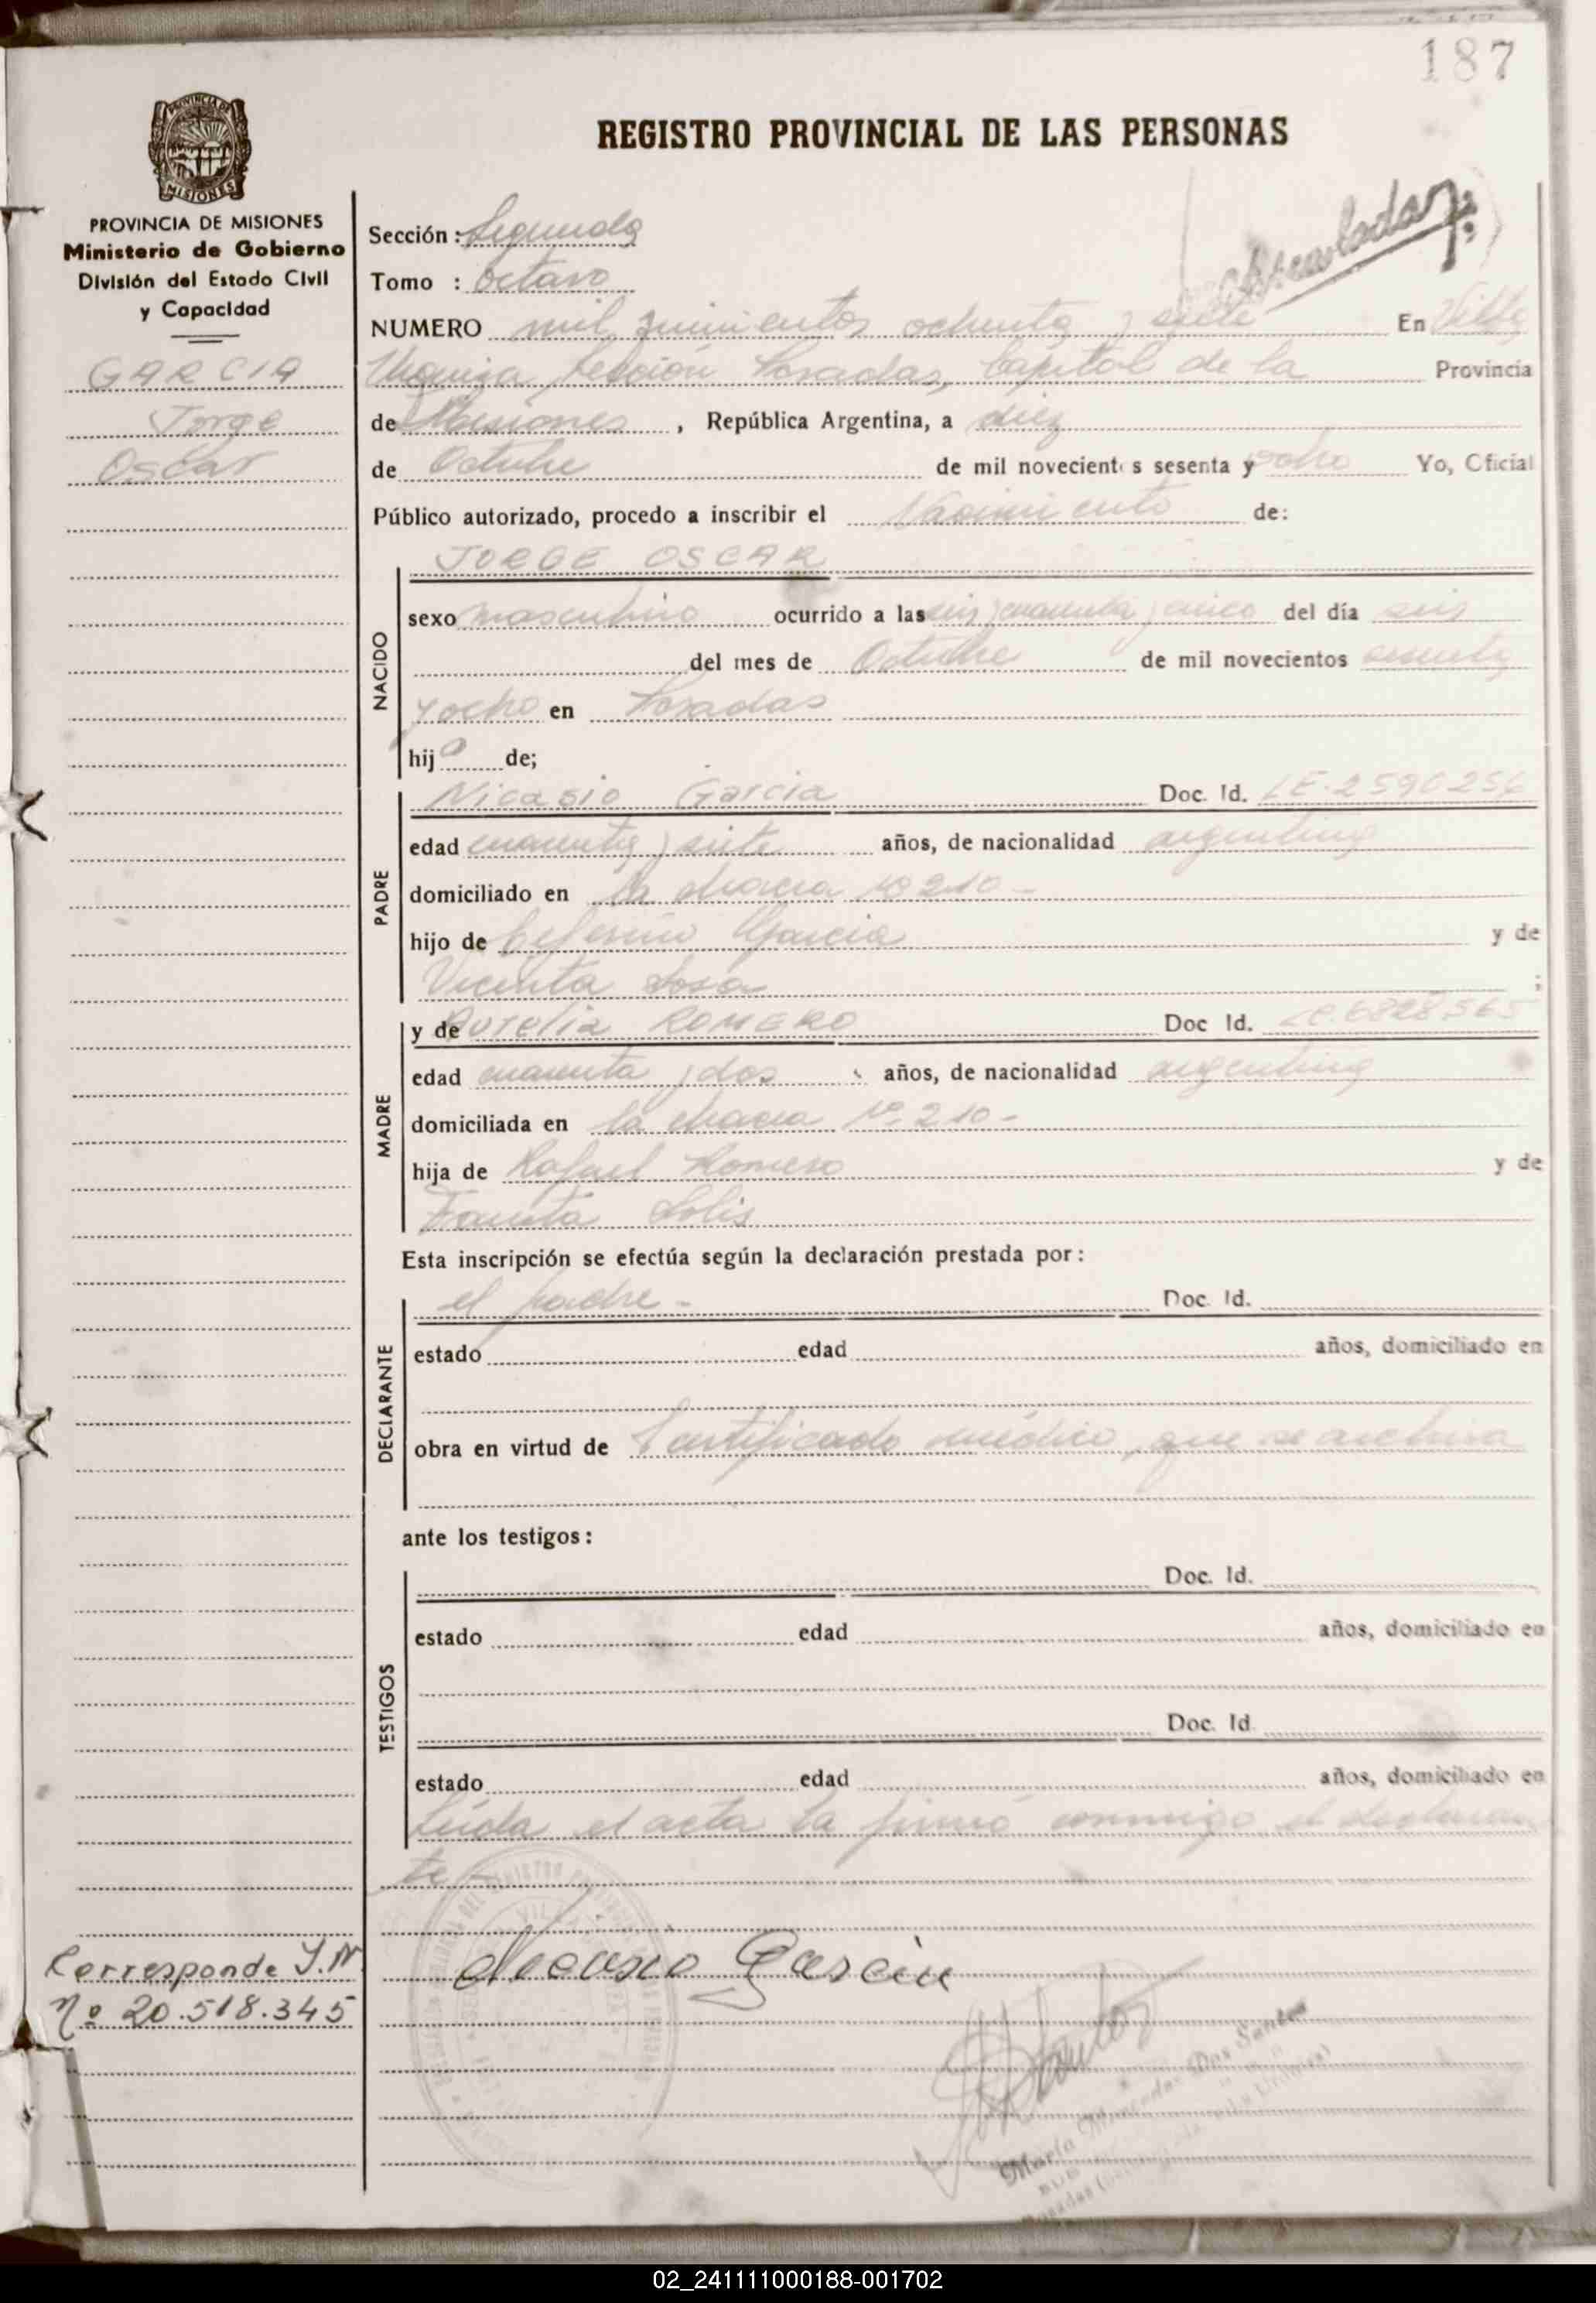 187
REGISTRO PROVINCIAL DE LAS PERSONAS
PROVINCIA DE MISIONES
MISIONES
PROVINCIA DE MISIONES
Ministerio de Gobierno
División del Estado Civil
y Capacidad
GARCIA
Jorge
Oscar
Corresponde I.N.
Nº 20.518.345
Sección: Segunda
Tomo : Octavo
NUMERO mil quinientos ochenta y siete En Villa
Urquiza Sección Posadas, Capital de la Provincia
de Misiones, República Argentina, a diez
de Octubre de mil novecientos sesenta y ocho Yo, Oficial
Público autorizado, procedo a inscribir el Nacimiento de:
NACIDO
JORGE OSCAR
sexo masculino ocurrido a las seis y cuarenta y cinco del día seis
del mes de Octubre de mil novecientos sesenta
y ocho en Posadas
hijo de;
PADRE
Nicasio Garcia Doc. Id. LE.2590256
edad cuarenta y siete años, de nacionalidad argentina
domiciliado en la chacra Nº 210-
hijo de Ceferino Garcia y de
Vicenta Sosa ;
MADRE
y de Aurelia ROMERO Doc Id. LC.6828565
edad cuarenta y dos años, de nacionalidad argentina
domiciliada en la chacra Nº 210-
hija de Rafael Romero y de
Fausta Solis
Esta inscripción se efectúa según la declaración prestada por:
DECLARANTE
el padre - Doc. Id.
estado edad años, domiciliado en
obra en virtud de Certificado médico, que se archiva
ante los testigos:
TESTIGOS
Doc. Id.
estado edad años, domiciliado en
Doc. Id.
estado edad años, domiciliado en
Leída el acta la firmó conmigo el declaran
te -
Nicasio Garcia
Maria Mercedes Dos Santos
02_241111000188-001702